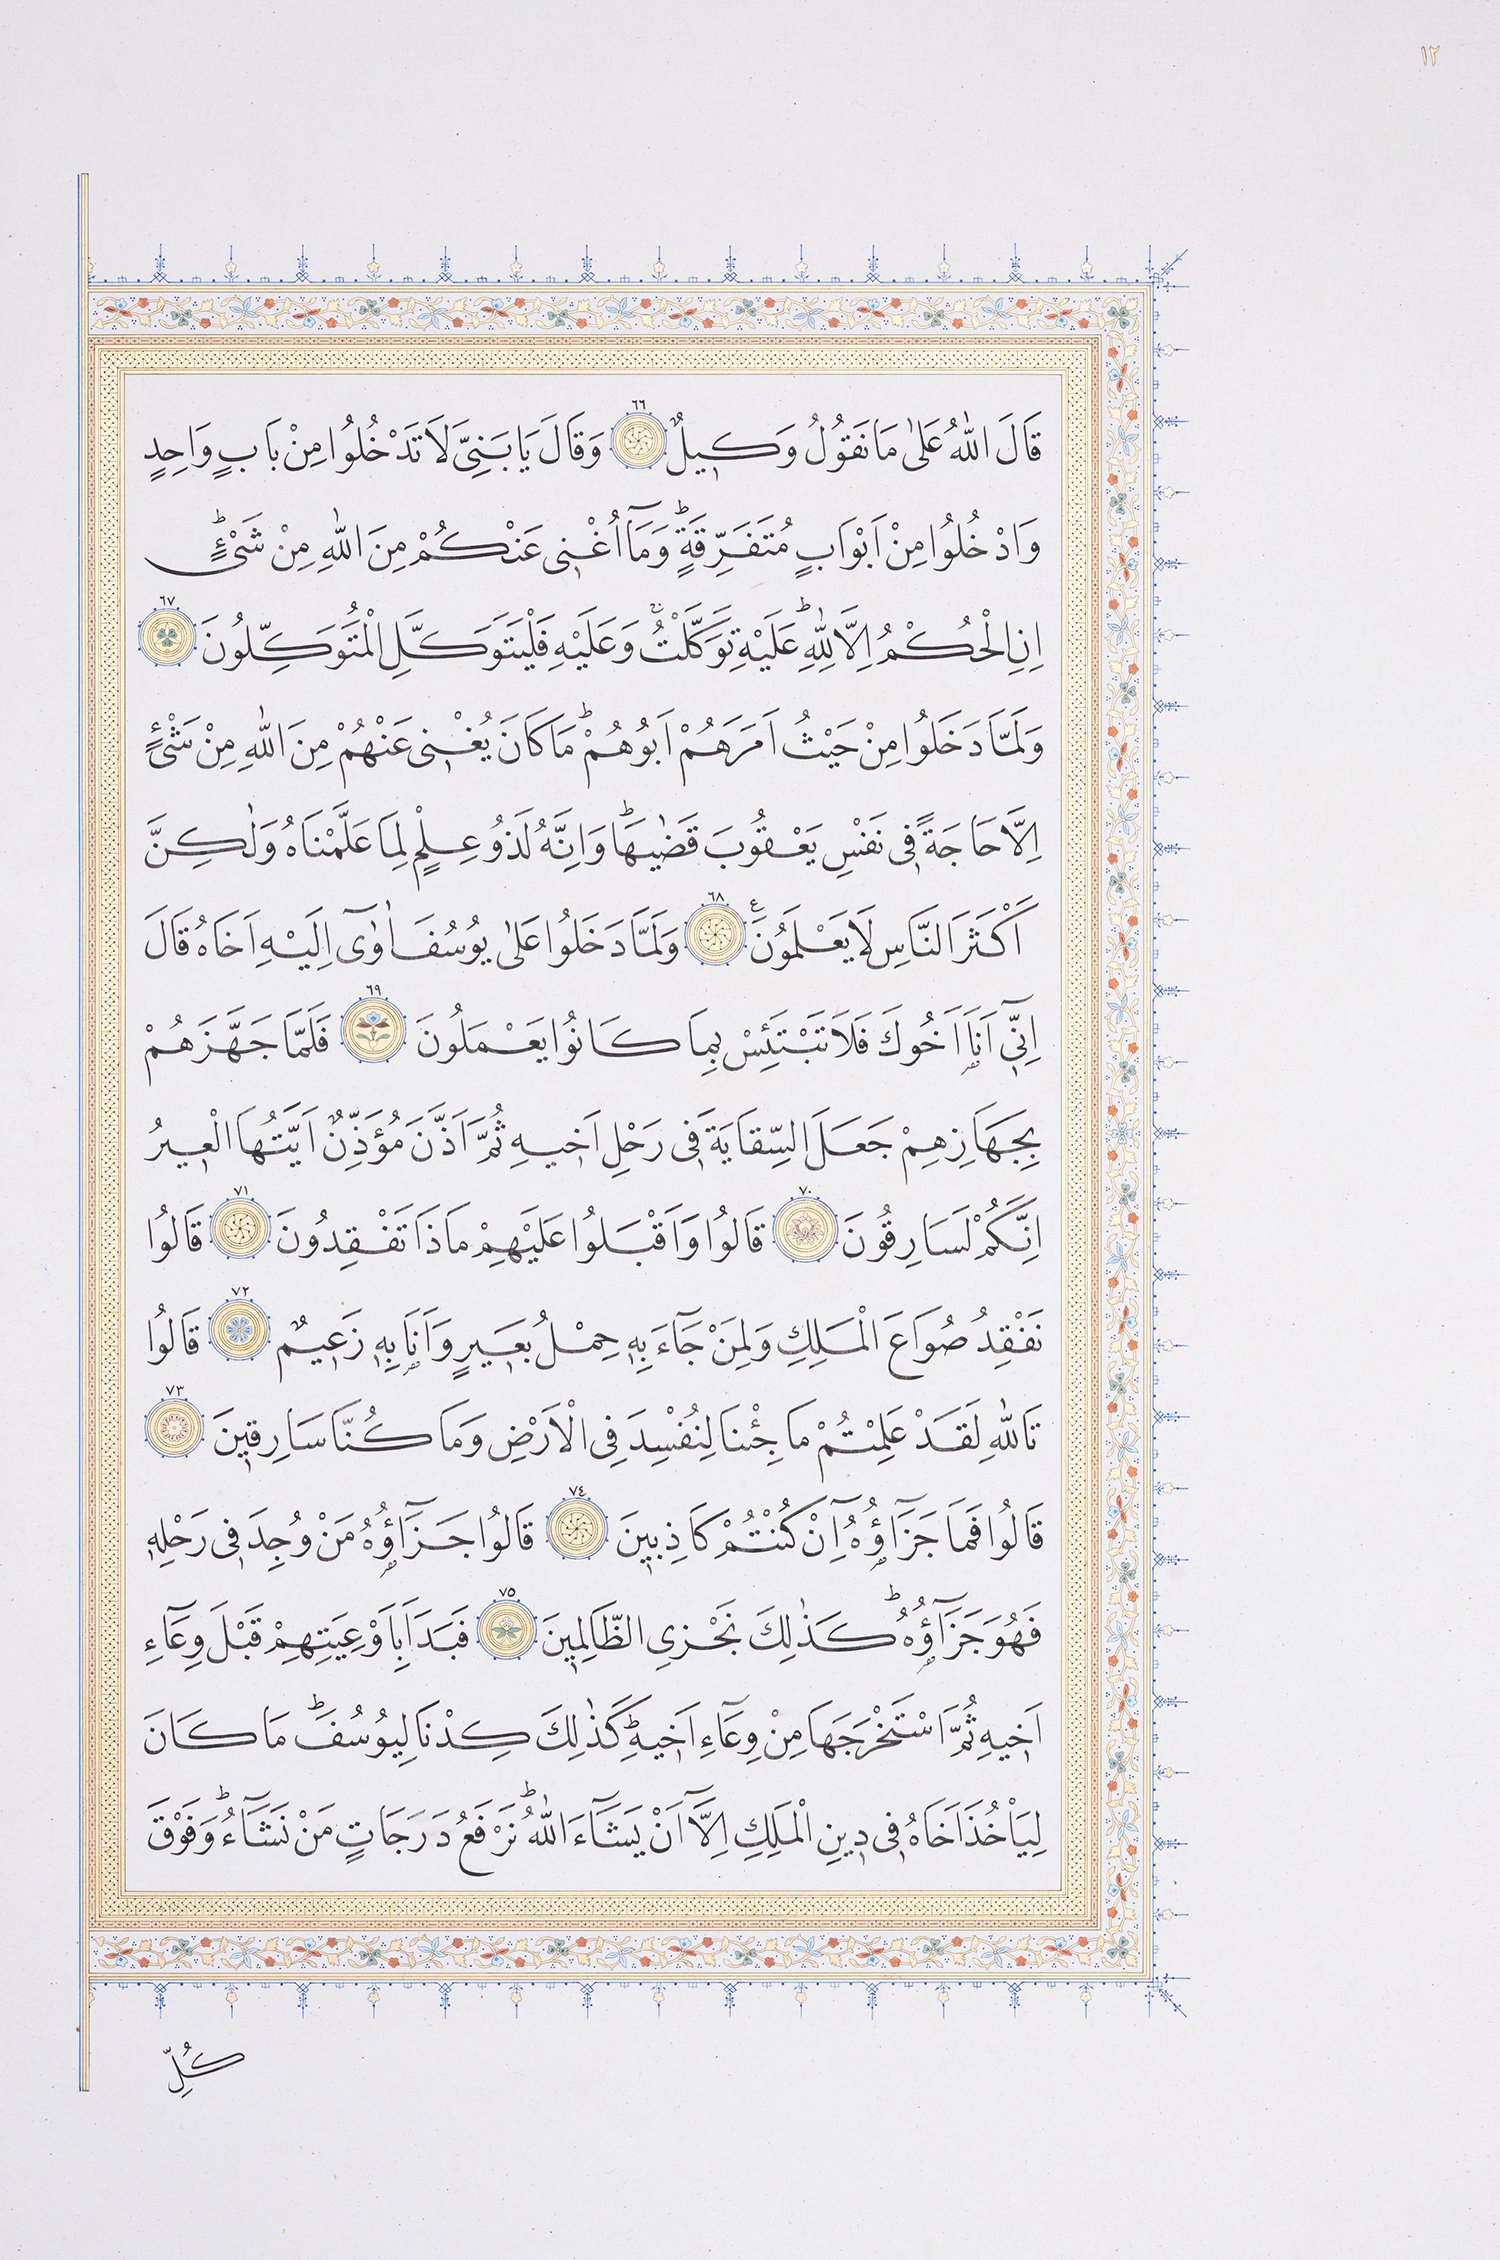 ١٢
قَالَ اللّٰهُ عَلٰى مَا نَقُولُ وَكٖيلٌ ٦٦ وَقَالَ يَا بَنِىَّ لَا تَدْخُلُوا مِنْ بَابٍ وَاحِدٍ
وَادْخُلُوا مِنْ اَبْوَابٍ مُتَفَرِّقَةٍؕ وَمَٓا اُغْنٖى عَنْكُمْ مِنَ اللّٰهِ مِنْ شَىْءٍؕ
اِنِ الْحُكْمُ اِلَّا لِلّٰهِؕ عَلَيْهِ تَوَكَّلْتُۚ وَعَلَيْهِ فَلْيَتَوَكَّلِ الْمُتَوَكِّلُونَ ٦٧
وَلَمَّا دَخَلُوا مِنْ حَيْثُ اَمَرَهُمْ اَبُوهُمْؕ مَا كَانَ يُغْنٖى عَنْهُمْ مِنَ اللّٰهِ مِنْ شَىْءٍ
اِلَّا حَاجَةً فٖى نَفْسِ يَعْقُوبَ قَضٰيهَاؕ وَاِنَّهُ لَذُو عِلْمٍ لِمَا عَلَّمْنَاهُ وَلٰكِنَّ
اَكْثَرَ النَّاسِ لَا يَعْلَمُونَ ع ٦٨ وَلَمَّا دَخَلُوا عَلٰى يُوسُفَ اٰوٰٓى اِلَيْهِ اَخَاهُ قَالَ
اِنّٖٓى اَنَا اَخُوكَ فَلَا تَبْتَئِسْ بِمَا كَانُوا يَعْمَلُونَ ٦٩ فَلَمَّا جَهَّزَهُمْ
بِجَهَازِهِمْ جَعَلَ السِّقَايَةَ فٖى رَحْلِ اَخٖيهِ ثُمَّ اَذَّنَ مُؤَذِّنٌ اَيَّتُهَا الْعٖيرُ
اِنَّكُمْ لَسَارِقُونَ ٧٠ قَالُوا وَاَقْبَلُوا عَلَيْهِمْ مَاذَا تَفْقِدُونَ ٧١ قَالُوا
نَفْقِدُ صُوَاعَ الْمَلِكِ وَلِمَنْ جَٓاءَ بِهٖ حِمْلُ بَعٖيرٍ وَاَنَا بِهٖ زَعٖيمٌ ٧٢ قَالُوا
تَاللّٰهِ لَقَدْ عَلِمْتُمْ مَا جِئْنَا لِنُفْسِدَ فِى الْاَرْضِ وَمَا كُنَّا سَارِقٖينَ ٧٣
قَالُوا فَمَا جَزَٓاؤُ۬هُٓ اِنْ كُنْتُمْ كَاذِبٖينَ ٧٤ قَالُوا جَزَٓاؤُ۬هُ مَنْ وُجِدَ فٖى رَحْلِهٖ
فَهُوَ جَزَٓاؤُ۬هُؕ كَذٰلِكَ نَجْزِى الظَّالِمٖينَ ٧٥ فَبَدَاَ بِاَوْعِيَتِهِمْ قَبْلَ وِعَٓاءِ
اَخٖيهِ ثُمَّ اسْتَخْرَجَهَا مِنْ وِعَٓاءِ اَخٖيهِؕ كَذٰلِكَ كِدْنَا لِيُوسُفَؕ مَا كَانَ
لِيَاْخُذَ اَخَاهُ فٖى دٖينِ الْمَلِكِ اِلَّٓا اَنْ يَشَٓاءَ اللّٰهُؕ نَرْفَعُ دَرَجَاتٍ مَنْ نَشَٓاءُؕ وَفَوْقَ
كُلِّ